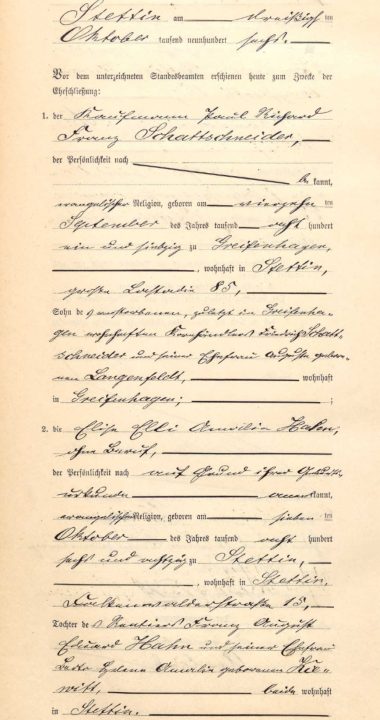 Stettin am dreißigsten
Oktober tausend neunhundert sechs.
Vor dem unterzeichneten Standesbeamten erschienen heute zum Zwecke der
Eheschließung:
1. der Kaufmann Paul Richard
Franz Schattschneider,
der Persönlichkeit nach
be kannt,
evangelischer Religion, geboren am vierzehn ten
September des Jahres tausend acht hundert
ein und siebzig zu Greifenhagen,
, wohnhaft in Stettin,
große Lastadie 85,
Sohn des verstorbenen, zuletzt in Greifenha-
gen wohnhaften Kornhändlers Friedrich Schatt-
schneider und seiner Ehefrau Auguste gebore-
nen Langenfeldt, wohnhaft
in Greifenhagen; ;
2. die Elise Elli Amalie Hahn,
ohne Beruf,
der Persönlichkeit nach auf Grund ihrer Geburts-
urkunde anerkannt,
evangelischer Religion, geboren am sieben ten
Oktober des Jahres tausend acht hundert
sechs und achtzig zu Stettin,
, wohnhaft in Stettin,
Falkenwalderstraße 15,
Tochter des Rentiers Franz August
Eduard Hahn und seiner Ehefrau
Helene Amalie geborenen
witt, beide wohnhaft
in Stettin.